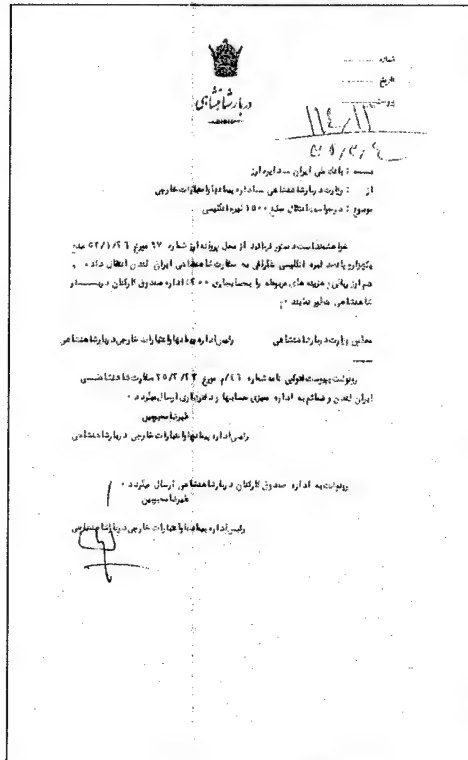 دربار شاهنشاهی
شماره
تاریخ
پیوست
۱۱٤/۱۱
به : بانک ملی ایران ـ اداره ارز
از : وزارت دربار شاهنشاهی ـ اداره پیمانها و اعتبارات خارجی
موضوع : درخواست انتقال مبلغ ۱۵۰۰ لیره انگلیسی
خواهشمند است دستور فرمائید از محل پروانه ارز شماره ۹۷ مورخ مبلغ
یکهزار و پانصد لیره انگلیسی تلگرافی به سفارت شاهنشاهی ایران لندن انتقال داده و
هم ارز ریالی و هزینه های مربوطه را بحساب جاری اداره صندوق کارکنان دربار
شاهنشاهی منظور نمایند .
معاون وزارت دربار شاهنشاهی رئیس اداره پیمانها و اعتبارات خارجی دربار شاهنشاهی
رونوشت بپیوست فتوکپی نامه شماره ٤٦/م مورخ سفارت شاهنشاهی
ایران لندن و ضمائم به اداره ممیزی حسابها و دفترداری ارسال میگردد .
رئیس اداره پیمانها و اعتبارات خارجی دربار شاهنشاهی
رونوشت به اداره صندوق کارکنان دربار شاهنشاهی ارسال میگردد .
رئیس اداره پیمانها و اعتبارات خارجی دربار شاهنشاهی